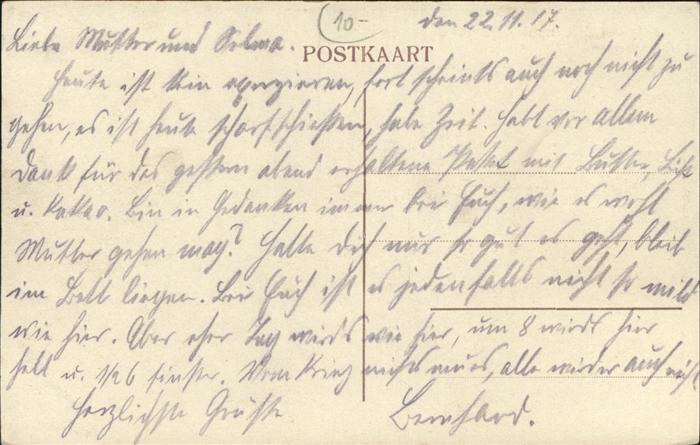 10-
den 22.11.17.
Liebe Mutter und Selma.
POSTKAART
Heute ist kein exerzieren, fort scheints auch noch nicht zu
gehen, es ist heute scharfschießen, habe Zeit. Habt vor allem
Dank für das gestern abend erhaltene Paket mit Butter,
u. Kakao. Bin in Gedanken immer bei Euch, wie es wohl
Mutter gehen mag? Halte dich nur so gut es geht, bleib
im Bett liegen. Bei Euch ist es jedenfalls nicht so mild
wie hier. Aber eher Tag wirds wie hier, um 8 wirds hier
hell u. 1/2 6 finster. Vom Krieg nichts neues, alle auch nicht
Herzlichste Grüße Bernhard.